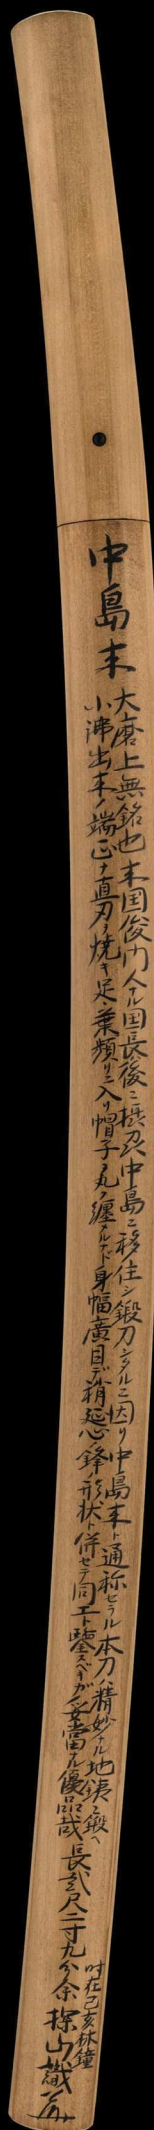 中島来
大磨上無銘也来国俊門人ナル国長後ニ摂刕中島ニ移住シ鍛刀シタルニ因リ中島来ト通称セラル本刀ノ精妙ナル地鉄ニ鍛ヘ
小沸出来ノ端正ナ直刃ヲ焼キ足・葉頻リニ入リ帽子ヲ丸ク纏メルナド身幅廣目デ稍延心ノ鋒形状ト併セテ同工ト鑒スベキガ妥當ナル優品哉
長貳尺二寸九分余
時在己亥林鐘
探山識